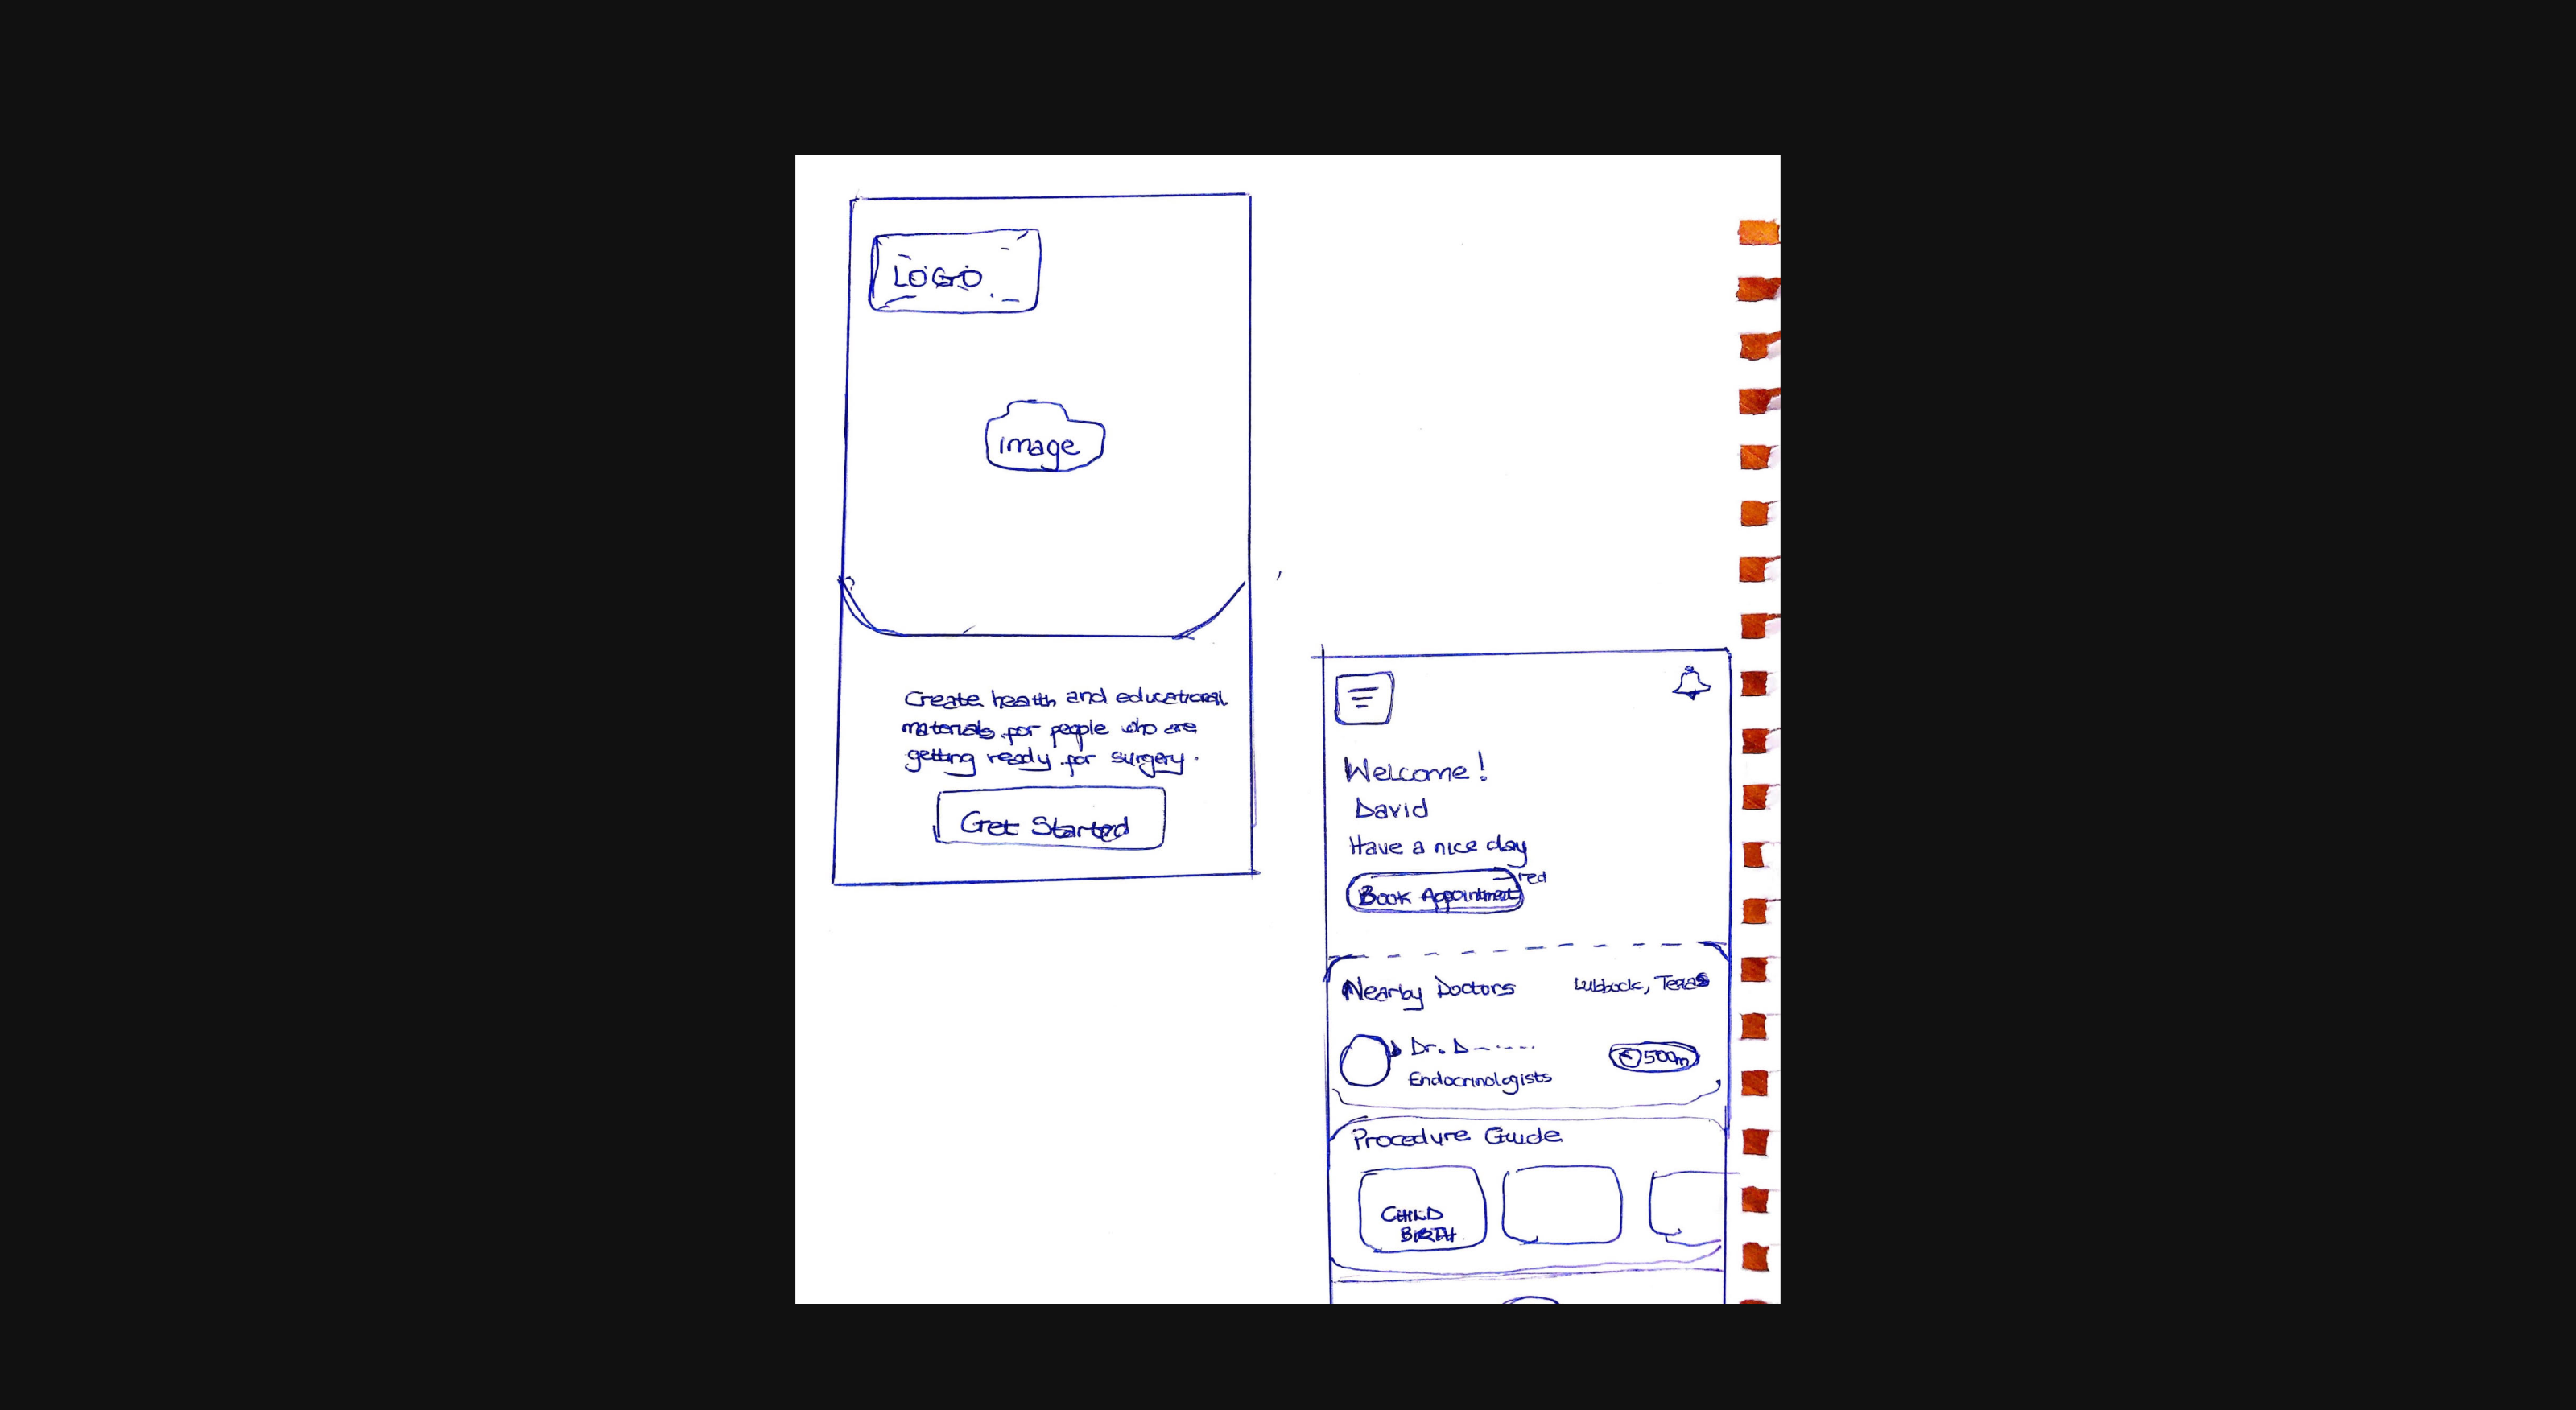 LOGO
image
Create health and educational
materials for people who are
getting ready for surgery.
Get Started
Welcome!
David
Have a nice day
red
Book Appointment
Nearby Doctors
Lubbock, Texas
Dr. D
Endocrinologists
500m
Procedure Guide
CHILD
BIRTH